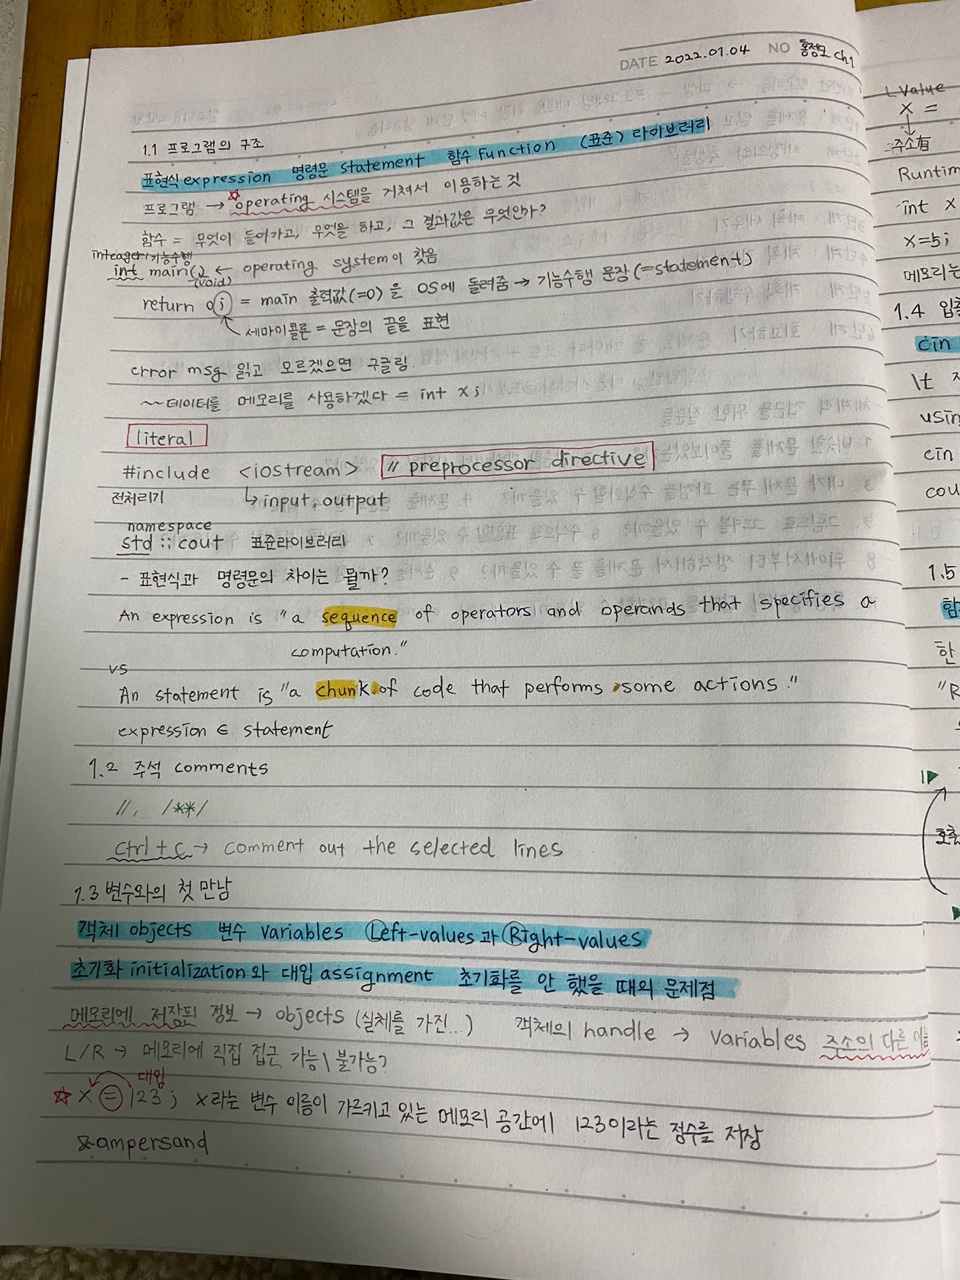 DATE 2022.01.04 NO 홍정모 ch1
1.1 프로그램의 구조
표현식 expression 명령문 statement 함수 Function (표준) 라이브러리
프로그램 → operating 시스템을 거쳐서 이용하는 것
함수 = 무엇이 들어가고, 무엇을 하고, 그 결과값은 무엇인가?
inteager: 기능수행
int main() ← operating system이 찾음
(void)
return 0; = main 출력값(=0)을 OS에 돌려줌 → 기능수행 문장(=statement)
세미콜론 = 문장의 끝을 표현
error msg 읽고 모르겠으면 구글링.
~~데이터를 메모리를 사용하겠다 = int x;
literal
#include <iostream> // preprocessor directive
전처리기 input, output
namespace
std :: cout 표준라이브러리
- 표현식과 명령문의 차이는 뭘까?
An expression is "a sequence of operators and operands that specifies a
computation."
vs
An statement is "a chunk of code that performs some actions."
expression ∈ statement
1.2 주석 comments
//, /**/
ctrl + c → comment out the selected lines
1.3 변수와의 첫 만남
객체 objects 변수 variables Left-values과 Right-values
초기화 initialization와 대입 assignment 초기화를 안 했을 때의 문제점
메모리에 저장된 정보 → objects (실체를 가진...) 객체의 handle → variables 주소의 다른 이름
L/R → 메모리에 직접 접근 가능\불가능?
대입
☆ x = 123; x라는 변수 이름이 가르키고 있는 메모리 공간에 123이라는 정수를 저장
&ampersand
L Value
x =
주소有
Runtim
int x
x=5;
메모리는
1.4 입출
cin
\t
usin
cin
cou
1.5
함
한
"R